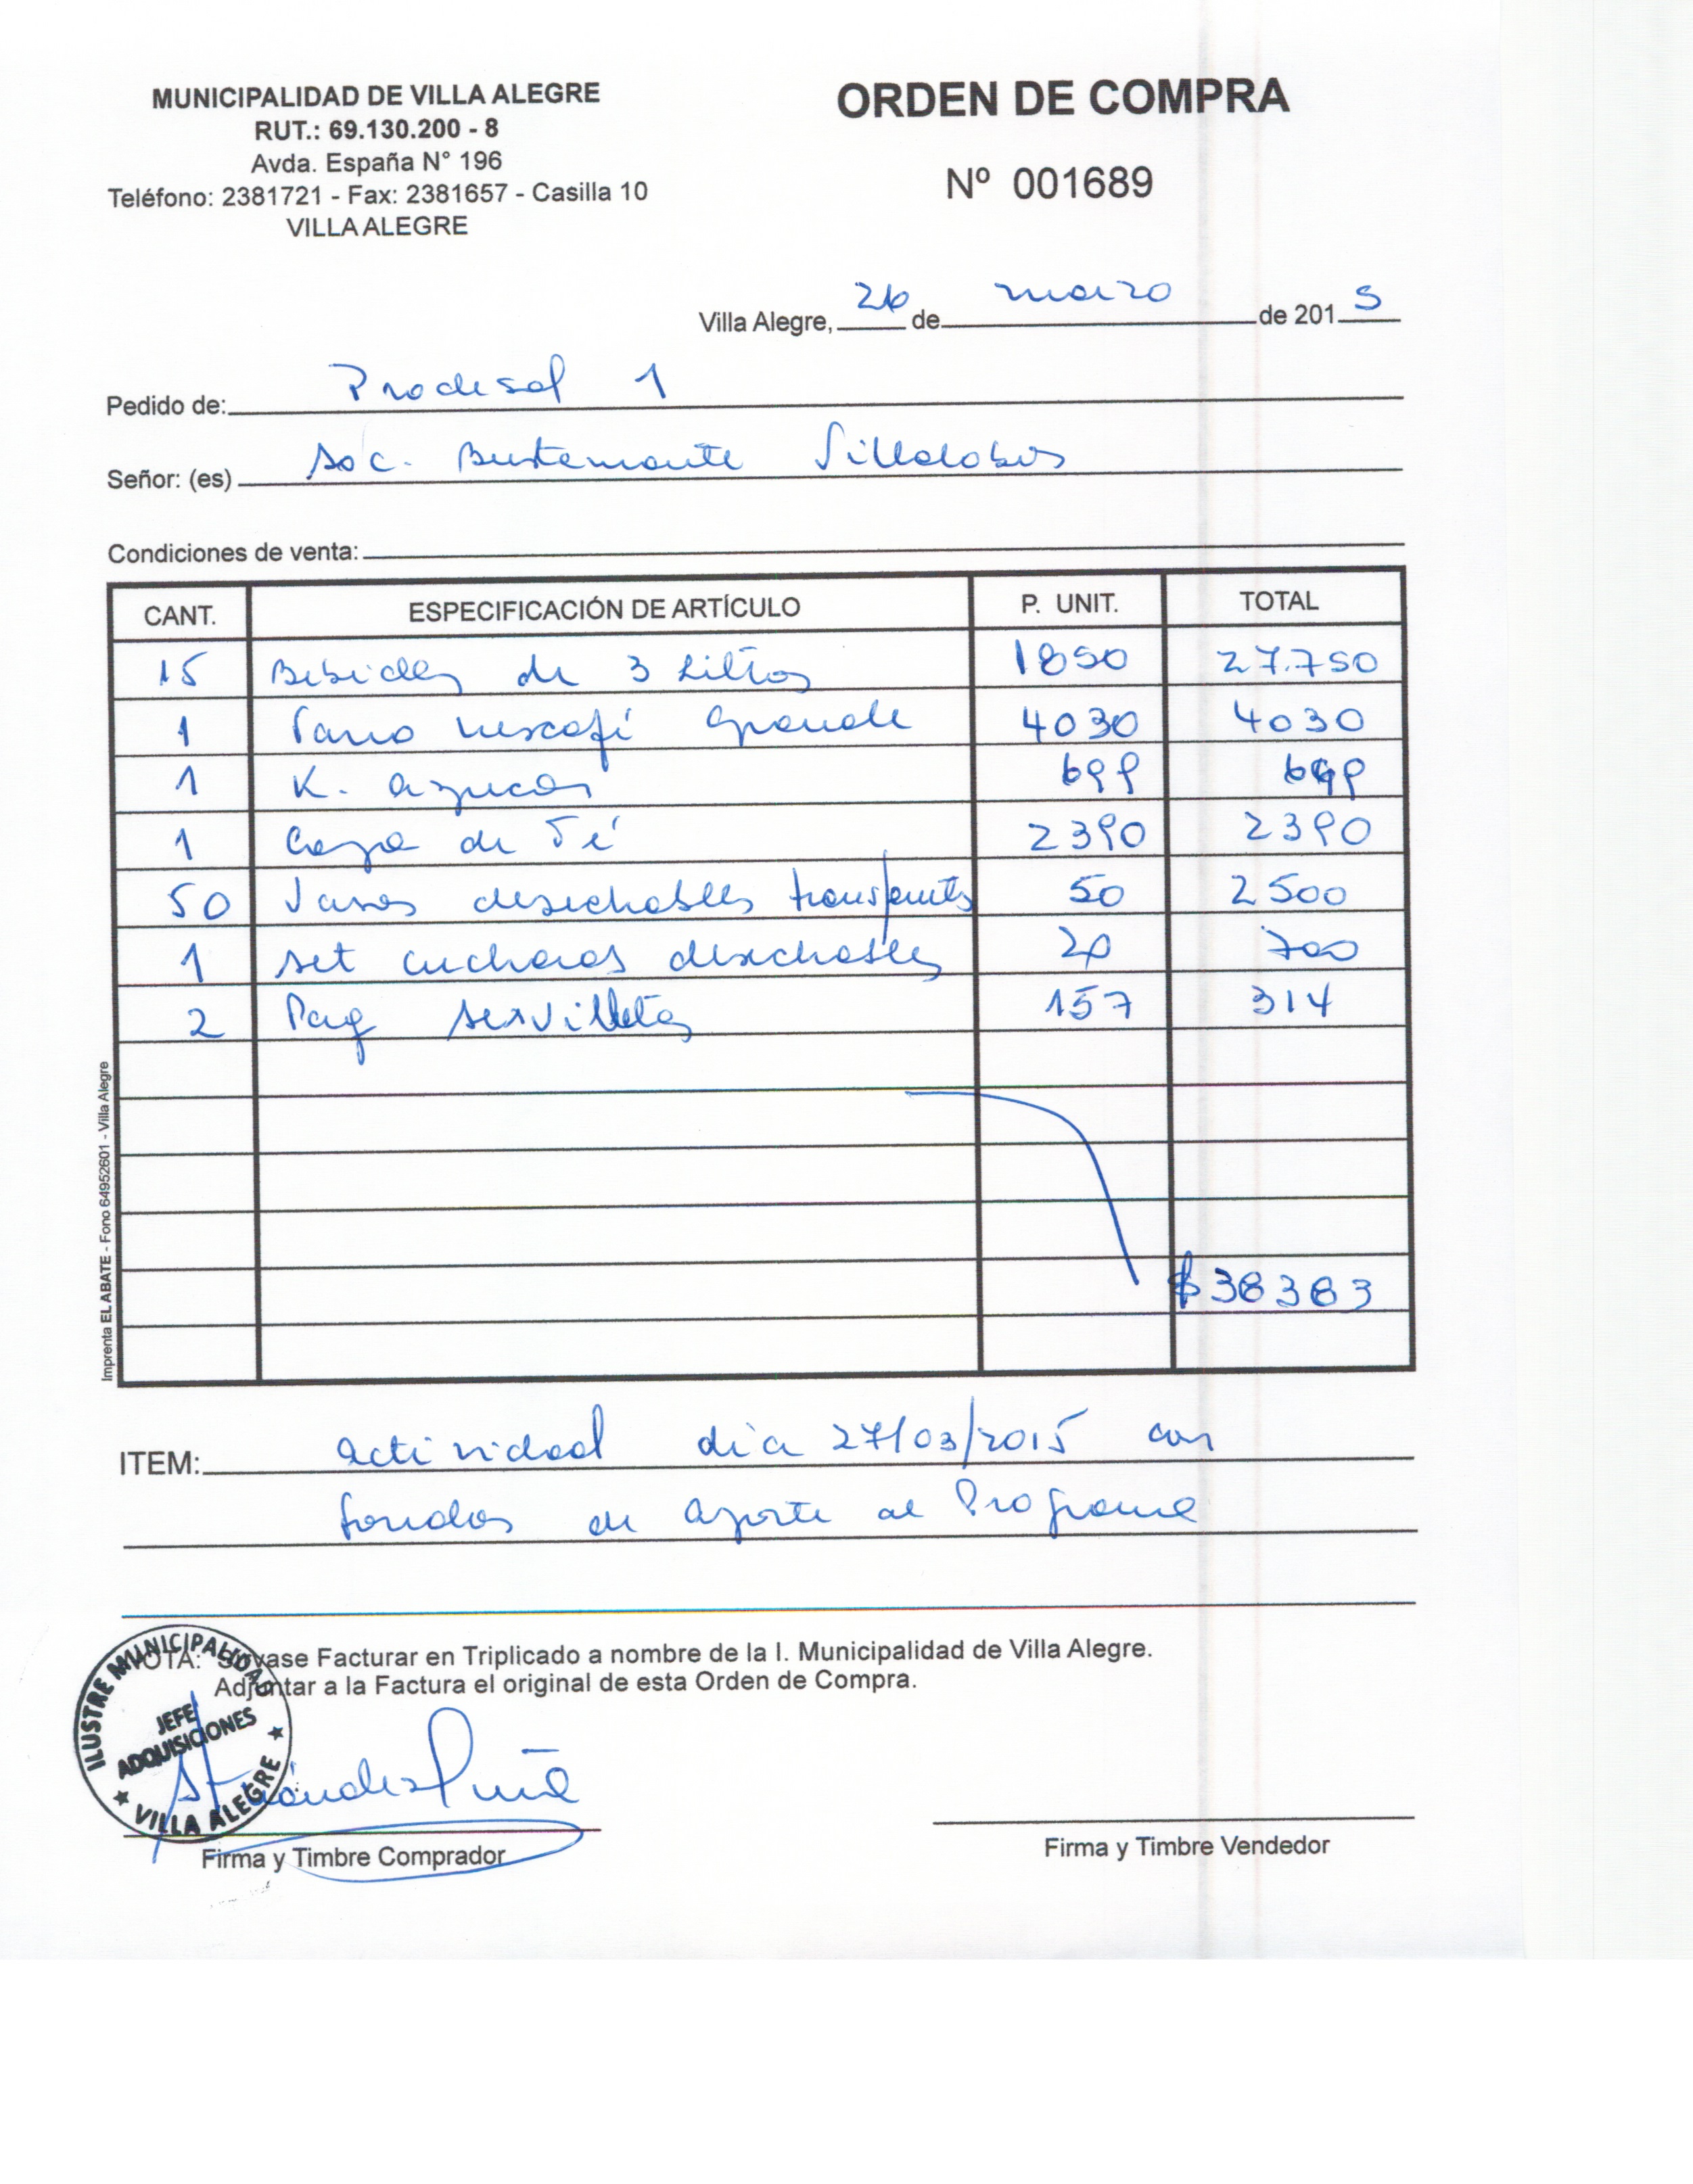 MUNICIPALIDAD DE VILLA ALEGRE
RUT.: 69.130.200 - 8
Avda. España N° 196
Teléfono: 2381721 - Fax: 2381657 - Casilla 10
VILLA ALEGRE
ORDEN DE COMPRA
Nº 001689
Villa Alegre, 26 de marzo de 2015
Pedido de: Prodesal 1
Señor: (es) Soc. Bustamante Villalobos
Condiciones de venta:
CANT. ESPECIFICACIÓN DE ARTÍCULO P. UNIT. TOTAL
15 Bebidas de 3 Litros 1850 27.750
1 Tarro Nescafé Grande 4030 4030
1 K. azucar 699 699
1 Caja de Té 2390 2390
50 Vasos desechables 50 2500
1 set cucharas desechables 700
2 Paq servilletas 157 314
$38383
Imprenta EL ABATE - Fono 64952601 - Villa Alegre
ITEM: actividad dia 27/03/2015 con
fondos de aporte al Programa
NOTA: Sírvase Facturar en Triplicado a nombre de la I. Municipalidad de Villa Alegre.
Adjuntar a la Factura el original de esta Orden de Compra.
ILUSTRE MUNICIPALIDAD
JEFE
ADQUISICIONES
★ VILLA ALEGRE ★
Firma y Timbre Comprador
Firma y Timbre Vendedor